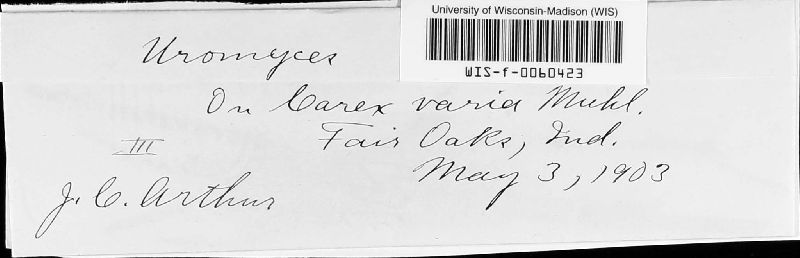 University of Wisconsin-Madison (WIS)
WIS-f-0060423
Uromyces
On Carex varia Muhl.
Fair Oaks, Ind.
III
May 3, 1903
J. C. Arthur